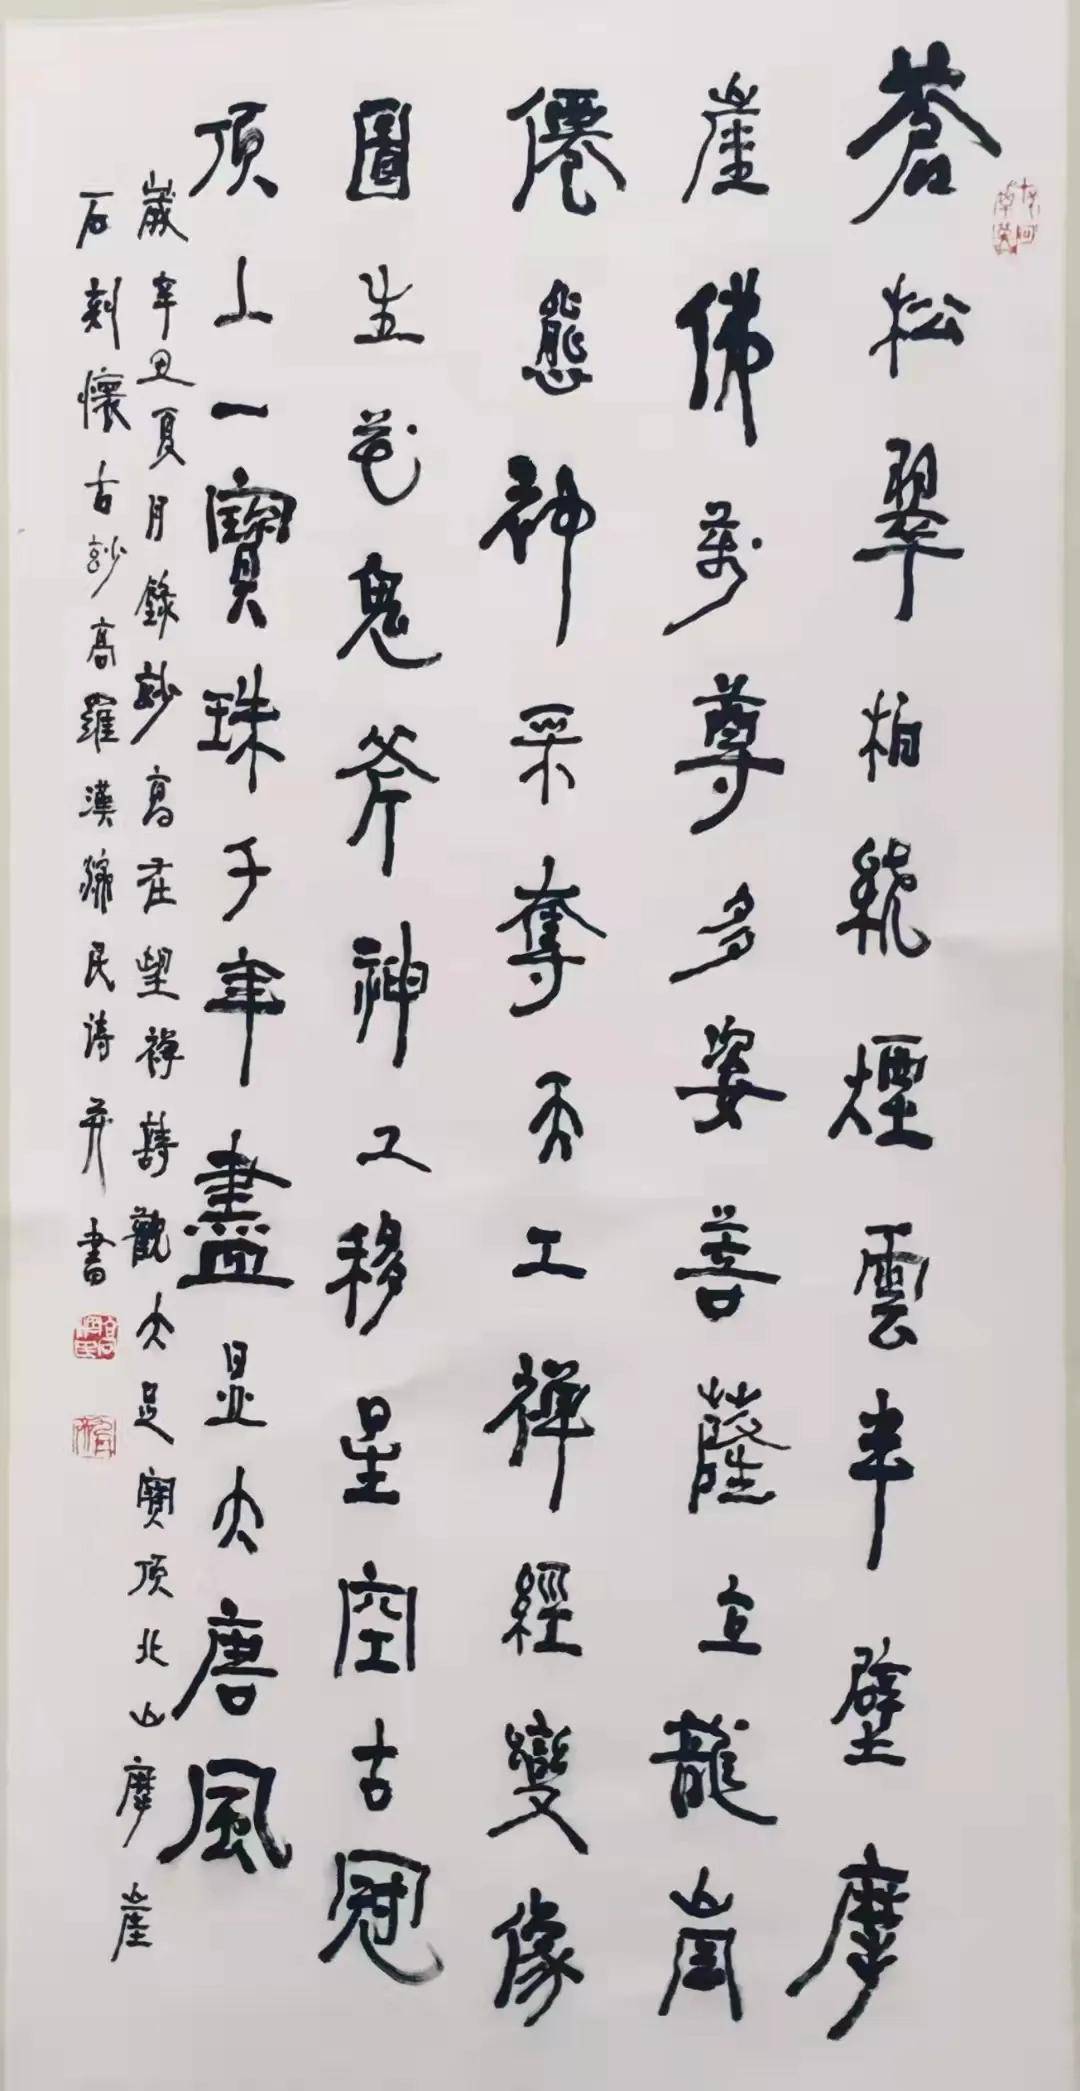 蒼松翠柏繞煙雲半壁摩
崖佛萬尊多姿菩薩立龍崗
僊態神采奪天工禪經變像
圖生花鬼斧神工移星空古冠
頂上一寶珠千年盡显大唐風
歲辛丑夏月錄妙高在望禅詩觀大足寶頂北山摩崖
石刻懷古妙高羅漢濟民诗并書